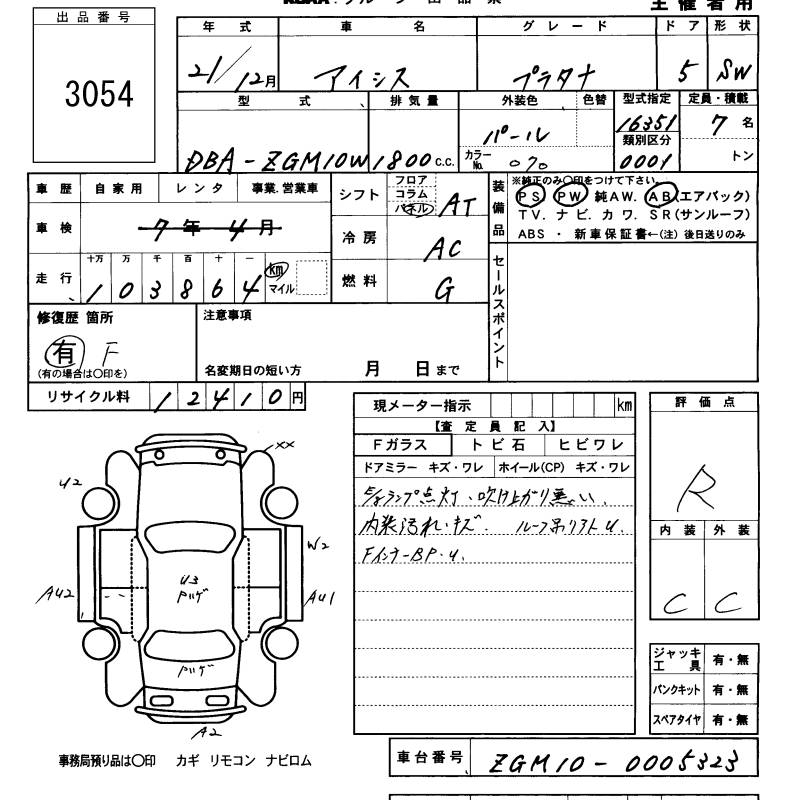 主催者用
出品番号
3054
年式 車名 グレード ドア 形状
21/12月 アイシス プラタナ 5 SW
型式 排気量 外装色 色替 型式指定 定員・積載
DBA-ZGM10W 1800c.c. パール 16351 7名
カラーNo. 070 類別区分 0001 トン
車歴 自家用 レンタ 事業.営業車
車検 7年4月
走行 十万 万 千 百 十 一
103864 km マイル
シフト フロア コラム パネル AT
冷房 AC
燃料 G
装備品 ※純正のみ○印をつけて下さい。
PS PW 純AW. AB(エアバック)
TV. ナビ. カワ. SR(サンルーフ)
ABS ・ 新車保証書←(注) 後日送りのみ
セールスポイント
修復歴 箇所 注意事項
有 F
(有の場合は○印を) 名変期日の短い方 月 日まで
リサイクル料 12410円
現メーター指示 km
【査定員記入】
Fガラス トビ石 ヒビワレ
ドアミラー キズ・ワレ ホイール(CP) キズ・ワレ
ランプ点灯、吹け上がり悪い、
内装汚れ・キズ. ルーフ
FインナーBP.U.
評価点
R
内装 外装
C C
XX
U2
W2
AU2
U3
AU1
A2
ジャッキ工具 有・無
パンクキット 有・無
スペアタイヤ 有・無
事務局預り品は○印 カギ リモコン ナビロム
車台番号 ZGM10-0005323